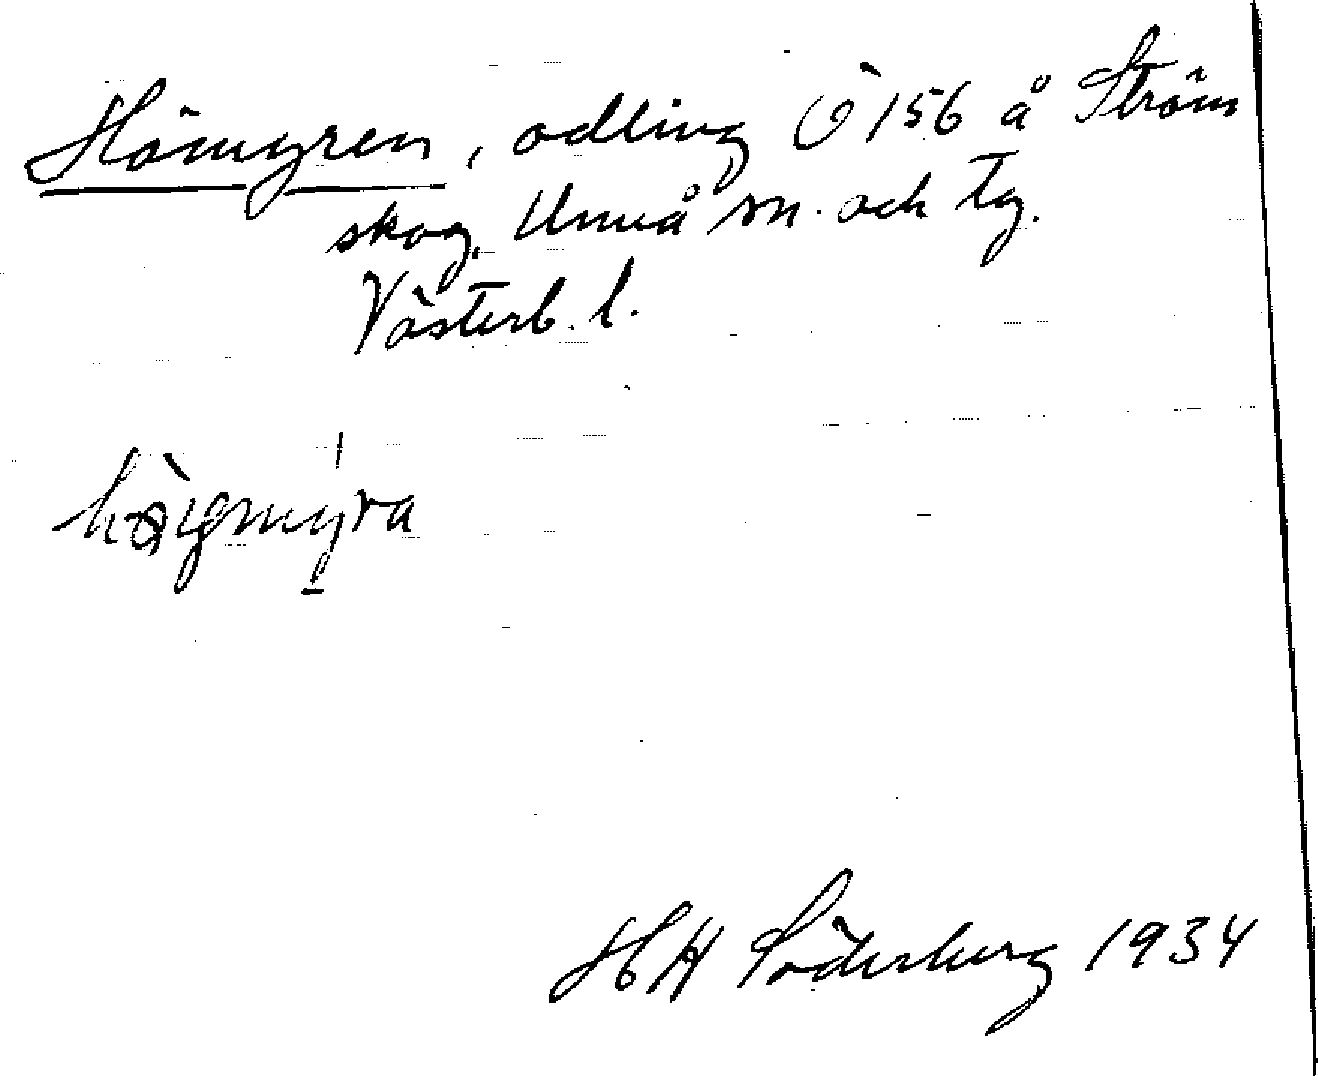 Hömyren, odling Ö 156 å Ström
skog, Umeå sn. och tg.
Västerb. l.
HH Söderberg 1934